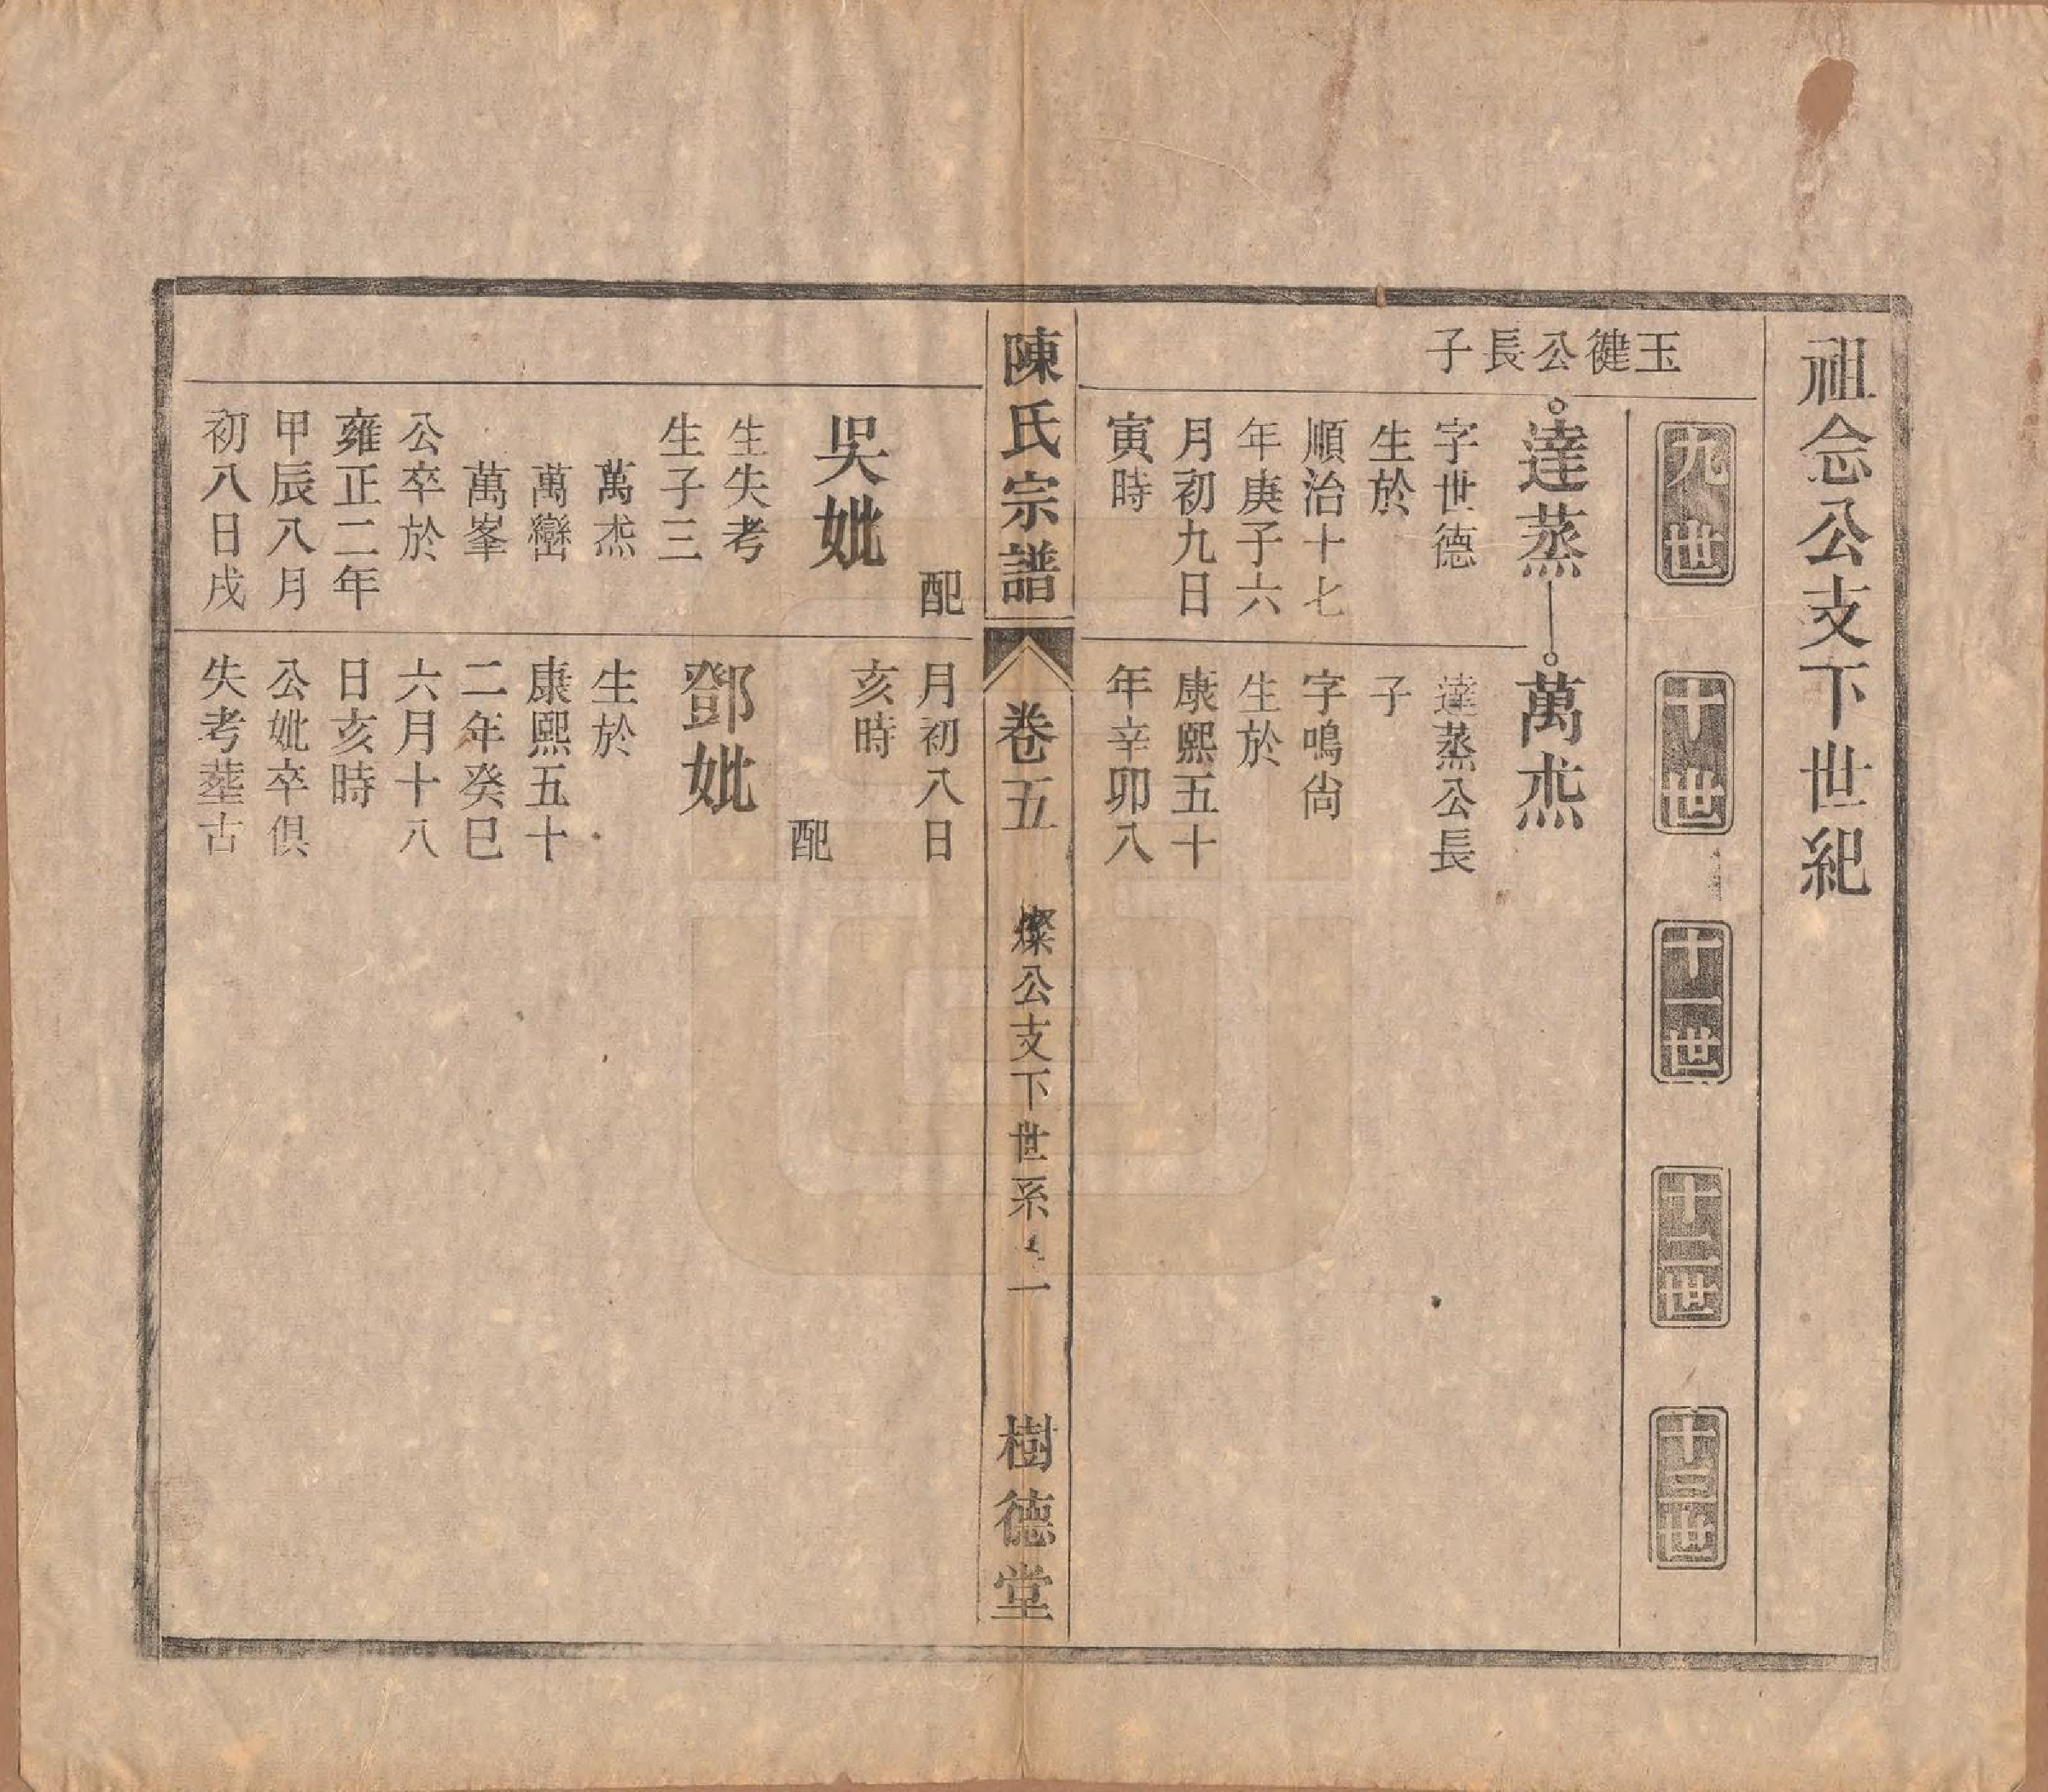 祖念公支下世紀
九世
十世
十一世
十二世
十三世
玉徤公長子
達蒸
字世德
生於
順治十七
年庚子六
月初九日
寅時
配
吳妣
生失考
生子三
萬烝
萬巒
萬峯
公卒於
雍正二年
甲辰八月
初八日戌
萬烝
達蒸公長
子
字鳴尙
生於
康熙五十
年辛卯八
月初八日
亥時
配
鄧妣
生於
康熙五十
二年癸巳
六月十八
日亥時
公妣卒俱
失考塟古
陳氏宗譜
卷五
燦公支下世系
一
樹德堂